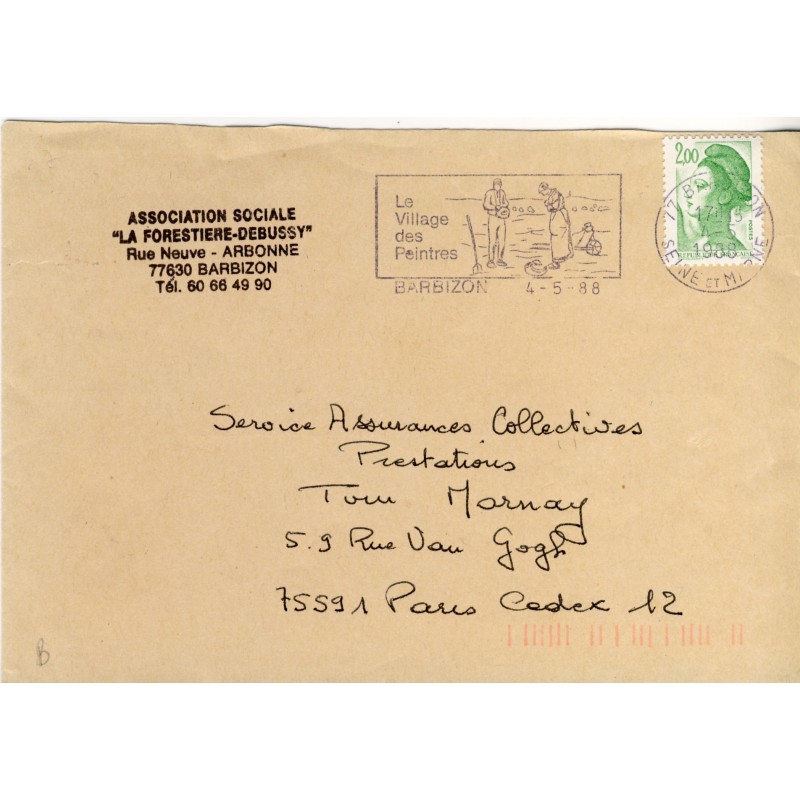 ASSOCIATION SOCIALE
"LA FORESTIERE-DEBUSSY"
Rue Neuve - ARBONNE
77630 BARBIZON
Tél. 60 66 49 90
Le
Village
des
Peintres
BARBIZON 4-5-88
2,00
POSTES
REPUBLIQUE FRANÇAISE
77 BARBIZON
17H
1988
SEINE ET MARNE
Service Assurances Collectives
Prestations
Tour Mornay
5.9 Rue Van Gogh
75591 Paris Cedex 12
B